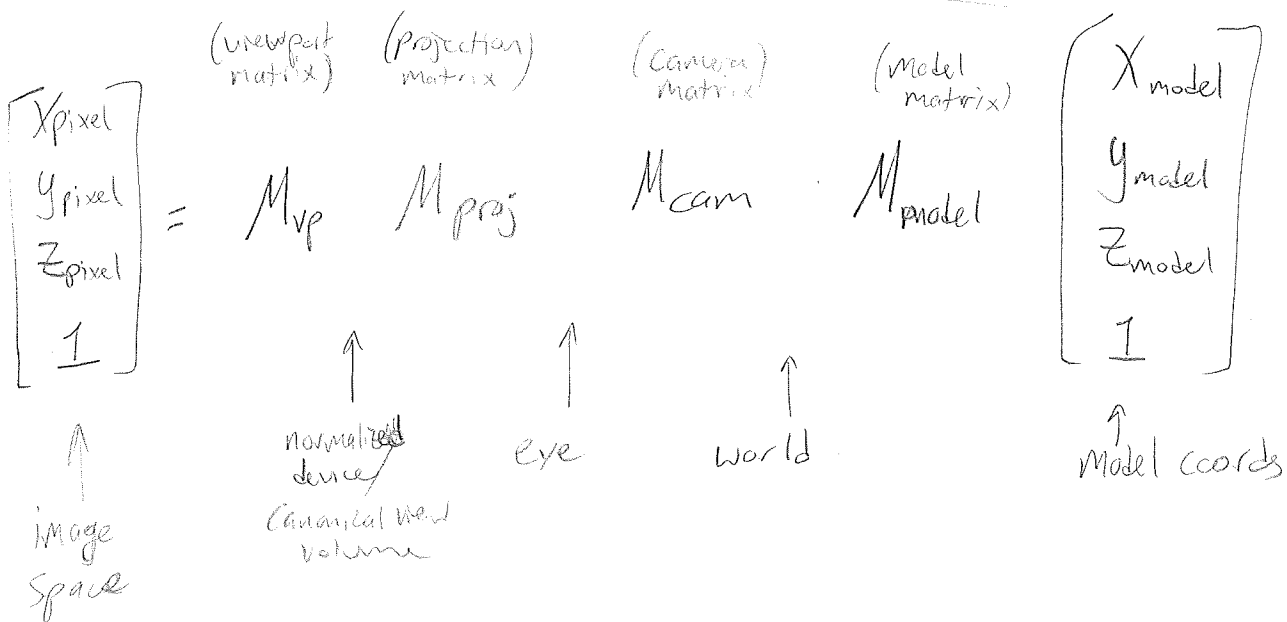 (viewport matrix) (projection matrix) (camera matrix) (model matrix)
[x_pixel y_pixel z_pixel 1] = M_vp M_proj M_cam · M_model [x_model y_model z_model 1]
↑ image space
↑ normalized device/ canonical view volume
↑ eye
↑ world
↑ model coords